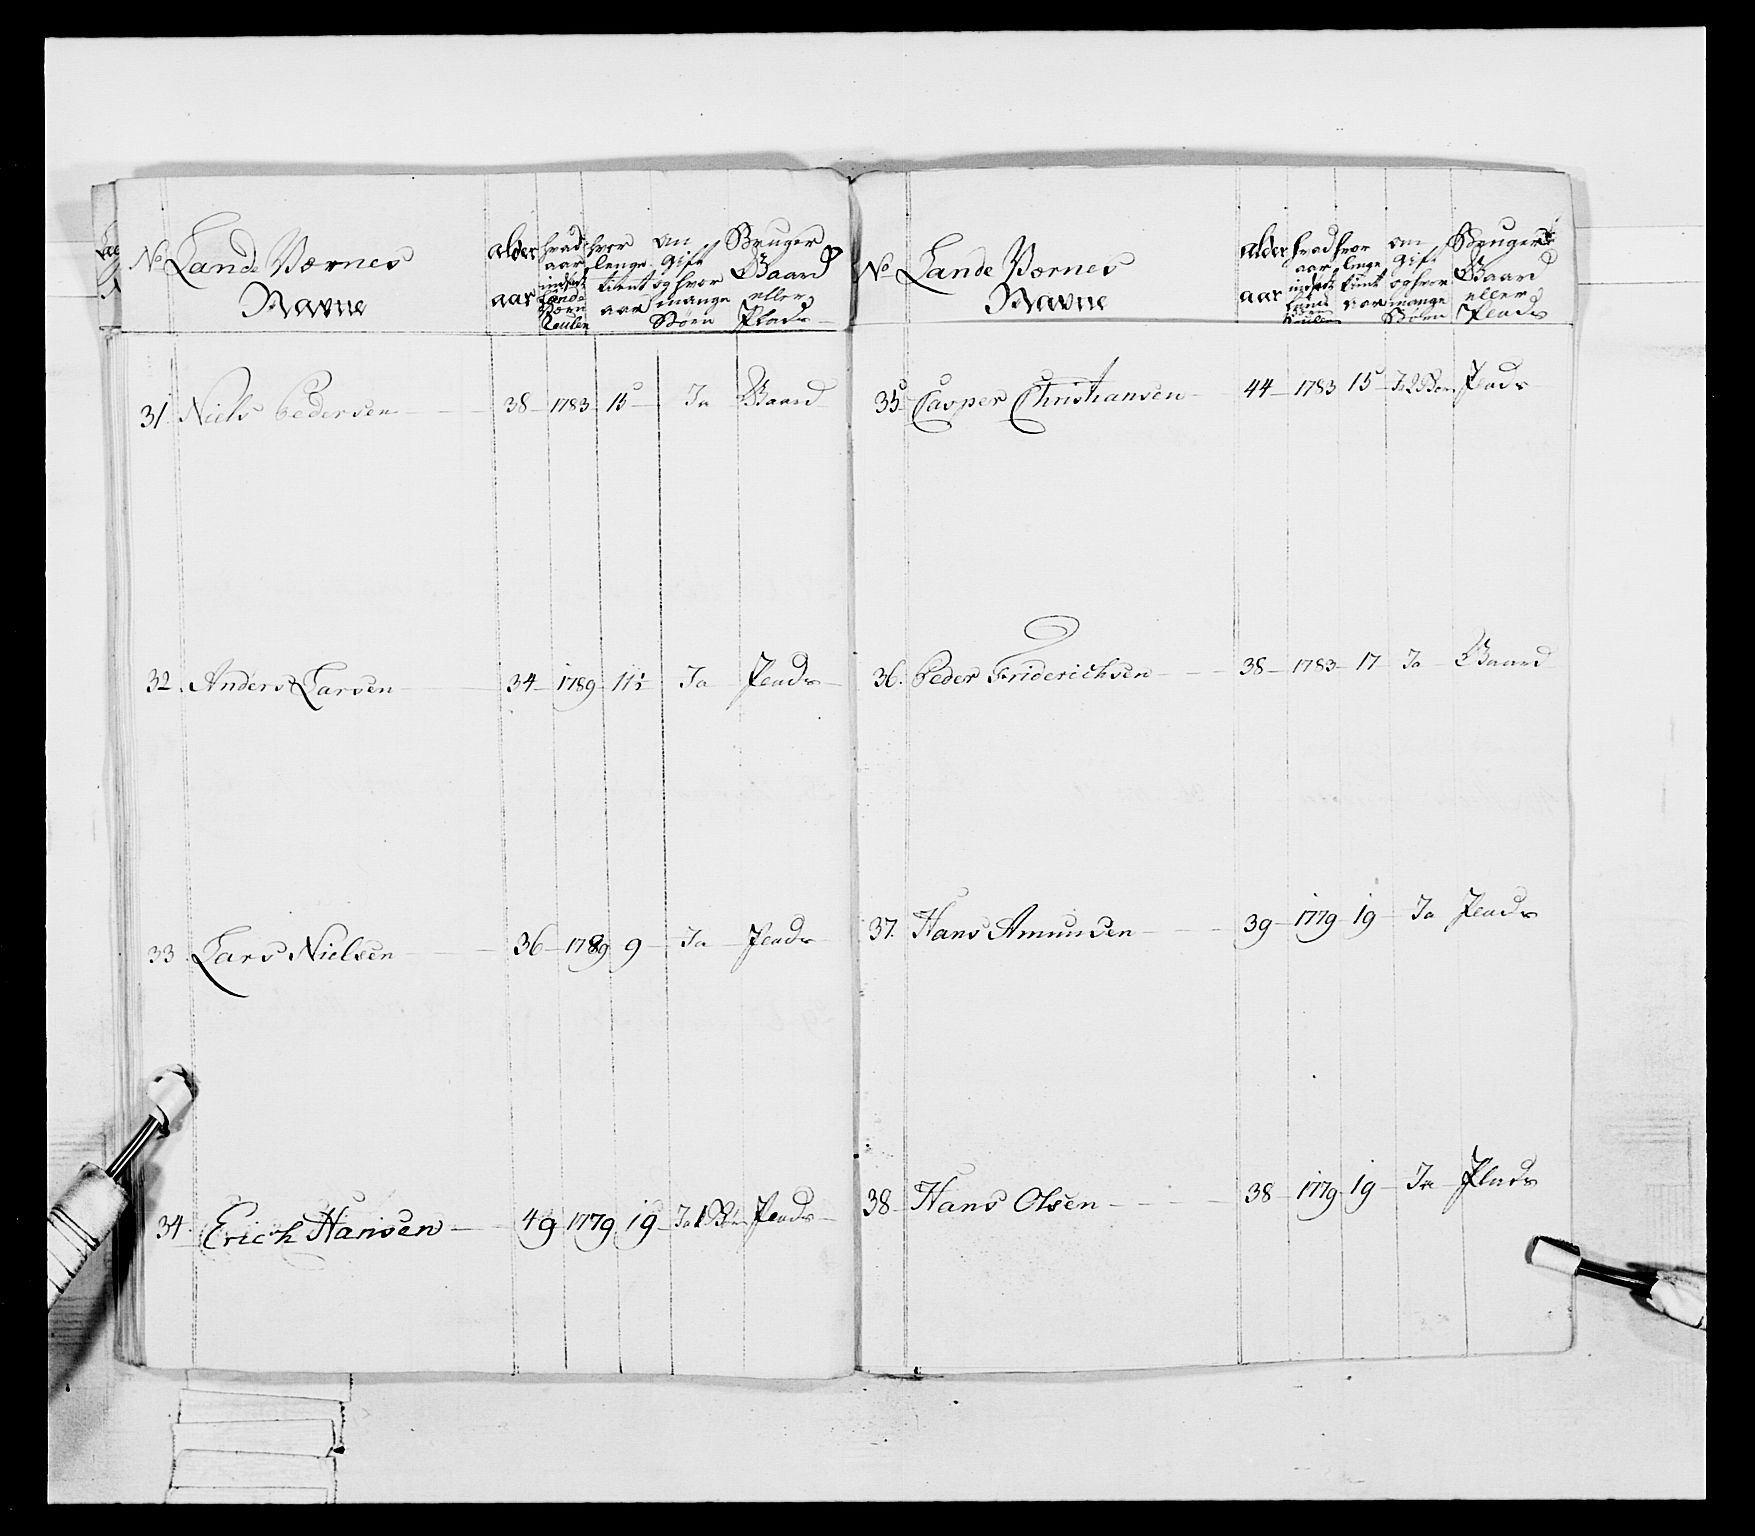 No Lande Værnes Navne | alder aar | hvad aar indsat Lande Værn Roulen | hvor lenge tient aar | om Gift og hvor mange Børn | Bruger Gaard eller Plads
31 Niels Pedersen 38 1783 15 Ja Gaard
32. Anders Larsen 34 1789 11½ Ja Plads
33 Lars Nielsen 36 1789 9 Ja Plads
34. Erich Hansen 49 1779 19 Ja 1 Børn Plads
No Lande Værnes Navne | alder aar | hvad aar indsat | hvor lenge tient aar | om Gift og hvor mange Børn | Bruger Gaard eller Plads
35 Casper Christiansen 44 1783 15 Ja 2 Børn Plads
36. Peder Friderichsen 38 1783 17 Ja Gaard
37. Hans Amundsen 39 1779 19 Ja Plads
38 Hans Olsen 38 1779 19 Ja Plads